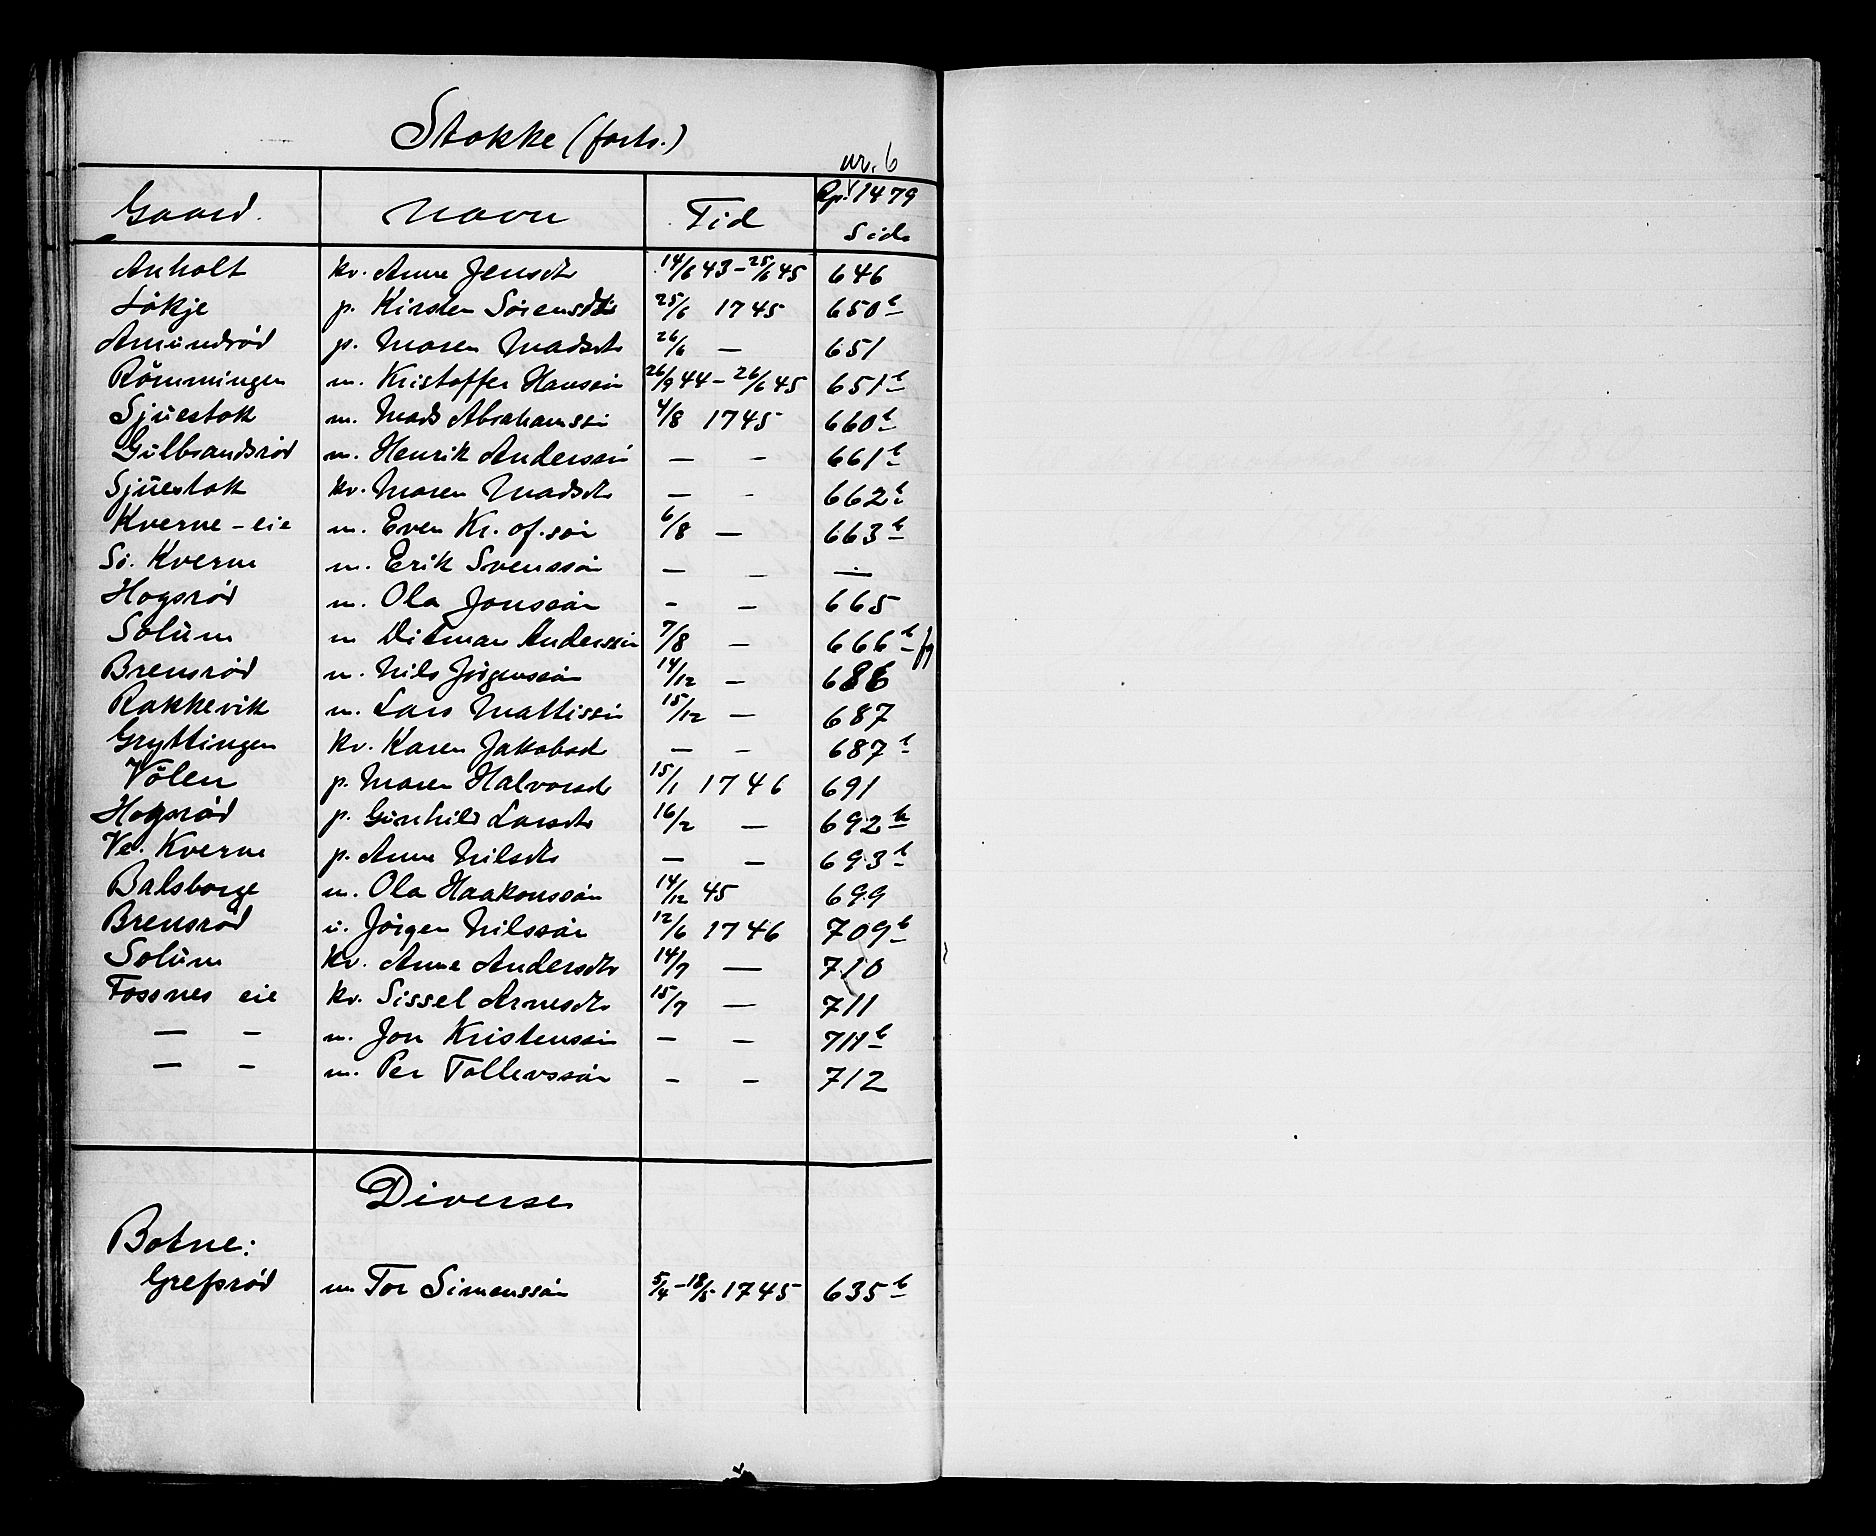 Stokke (forts.)
nr. 6
Gaard. Navn Tid Rp. 1479 Side
Anholt kv. Anne Jensdtr 14/6 43 – 25/6 45 646
Løkje p. Kirsten Sørensdtr 25/6 1745 650 b
Amundrød p. Maren Madsdtr 26/6 — 651
Rømmingen m. Kristoffer Hanssøn 26/9 44 – 26/6 45 651 b
Sjuestok m. Mads Abrahamssøn 4/8 1745 660 b
Gulbrandsrød m. Henrik Anderssøn — - 661 b
Sjuestok kv. Maren Madsdtr — - 662 b
Kverne - eie m. Even Kr. of. søn 6/8 — 663 b
Sø. Kverne m. Erik Svenssøn — — —
Hogsrød m. Ola Jonssøn - — 665
Solum m Ditman Anderssøn 7/8 — 666 b fg
Brensrød m. Nils Jørgenssøn 14/12 — 686
Rakkevik m. Lars Mattissøn 15/12 — 687
Gryttingen kv. Karen Jakobsd — - 687 b
Vølen p. Maren Halvorsd 15/1 1746 691
Hogsrød p. Gunhild Larsdtr 16/2 — 692 b
Ve. Kverne p. Anne Nilsdtr — — 693 b
Balsborge m. Ola Haakonssøn 14/12 45 699
Brensrød u. Jørgen Nilssøn 12/6 1746 709 b
Solum kv. Anne Andersdtr 14/7 — 710
Fossnes eie kv. Sissel Arnesdtr 15/7 — 711
— - m. Jon Kristenssøn — — 711 b
— - m. Per Tollevssøn - - 712
Diverse
Botne:
Grefsrød m Tor Simenssøn 5/4 – 18/5 1745 635 b